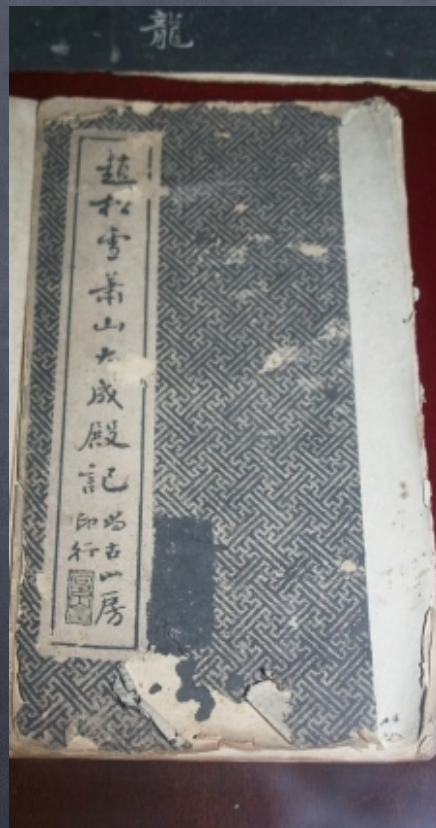 龍
趙松雪蕭山大成殿記
尚古山房
印行